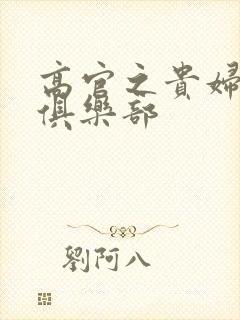 高官之貴婦
俱樂部
劉阿八